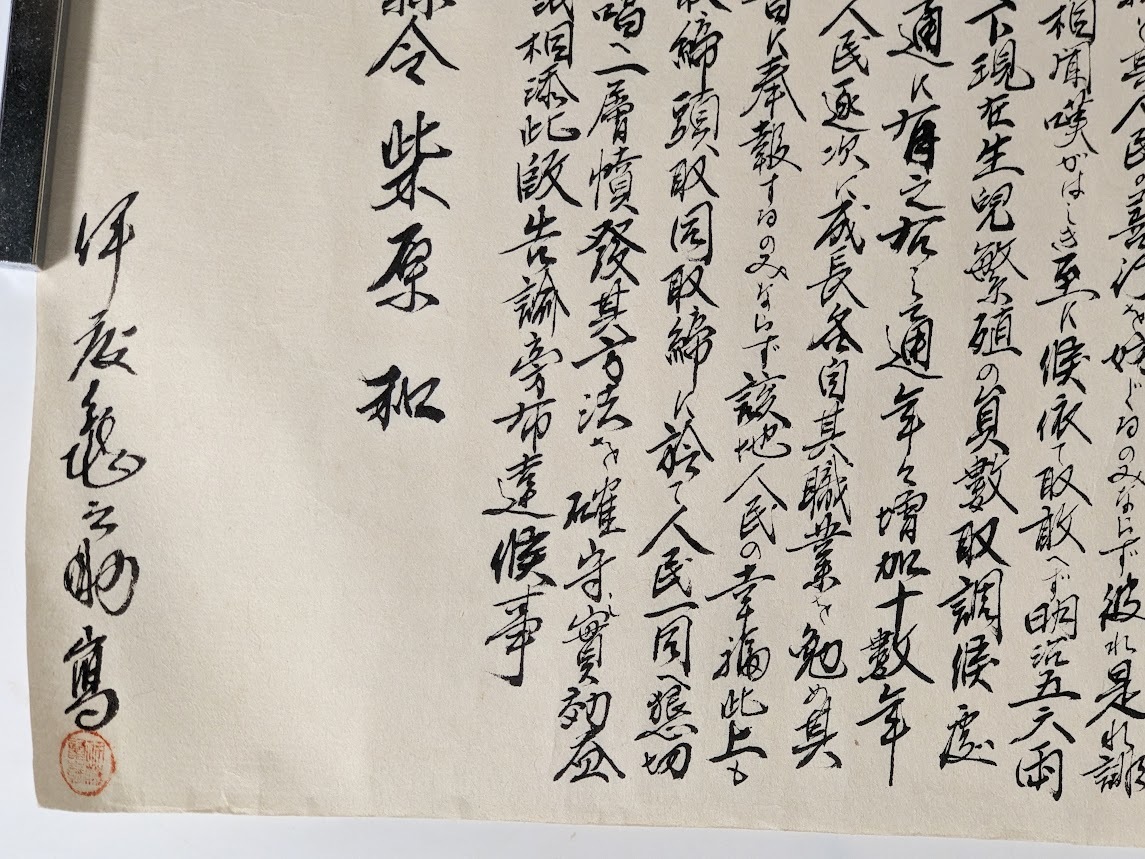 其人民の善治を妨ぐるのみならず彼れ是れ誹
相聞嘆がはしき至に候依て取敢へず明治五六両
下現在生児繁殖の員数取調候處
通に有之右之通年々増加十数年
人民逐次に成長各自其職業を勉め其
旨に奉報するのみならず該地人民の幸福此上も
取締頭取同取締に於て人民一同へ懇切
唱へ一層憤發其方法を確守し實効益
相添此段告諭旁布達候事
縣令柴原和
伊夜亀之助寫